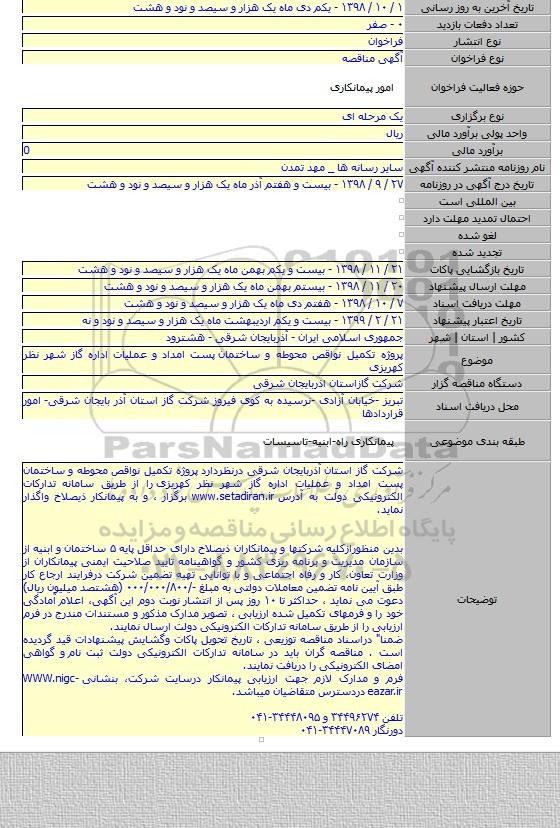 تاریخ آخرین به روز رسانی ۱ / ۱۰ / ۱۳۹۸ - یکم دی ماه یک هزار و سیصد و نود و هشت
تعداد دفعات بازدید ۰ - صفر
نوع انتشار فراخوان
نوع فراخوان آگهی مناقصه
حوزه فعالیت فراخوان امور پیمانکاری
نوع برگزاری یک مرحله ای
واحد پولی برآورد مالی ریال
برآورد مالی 0
نام روزنامه منتشر کننده آگهی سایر رسانه ها _ مهد تمدن
تاریخ درج آگهی در روزنامه ۲۷ / ۹ / ۱۳۹۸ - بیست و هفتم آذر ماه یک هزار و سیصد و نود و هشت
بین المللی است
احتمال تمدید مهلت دارد
لغو شده
تجدید شده
تاریخ بازگشایی پاکات ۲۱ / ۱۱ / ۱۳۹۸ - بیست و یکم بهمن ماه یک هزار و سیصد و نود و هشت
مهلت ارسال پیشنهاد ۲۰ / ۱۱ / ۱۳۹۸ - بیستم بهمن ماه یک هزار و سیصد و نود و هشت
مهلت دریافت اسناد ۷ / ۱۰ / ۱۳۹۸ - هفتم دی ماه یک هزار و سیصد و نود و هشت
تاریخ اعتبار پیشنهاد ۲۱ / ۲ / ۱۳۹۹ - بیست و یکم اردیبهشت ماه یک هزار و سیصد و نود و نه
کشور | استان | شهر جمهوری اسلامی ایران - آذربایجان شرقی - هشترود
موضوع پروژه تکمیل نواقص محوطه و ساختمان پست امداد و عملیات اداره گاز شهر نظر
کهریزی
دستگاه مناقصه گزار شرکت گازاستان اذربایجان شرقی
محل دریافت اسناد تبریز -خیابان آزادی -نرسیده به کوی فیروز شرکت گاز استان آذر بایجان شرقی- امور
قراردادها
طبقه بندی موضوعی پیمانکاری راه-ابنیه-تاسیسات
ParsNamadData
پایگاه اطلاع رسانی مناقصه و مزایده
توضیحات
شرکت گاز استان آذربایجان شرقی درنظردارد پروژه تکمیل نواقص محوطه و ساختمان
پست امداد و عملیات اداره گاز شهر نظر کهریزی را از طریق سامانه تدارکات
الکترونیکی دولت به آدرس www.setadiran.ir برگزار ، و به پیمانکار ذیصلاح واگذار
نماید.
بدین منظورازکلیه شرکتها و پیمانکاران ذیصلاح دارای حداقل پایه ۵ ساختمان و ابنیه از
سازمان مدیریت و برنامه ریزی کشور و گواهینامه تایید صلاحیت ایمنی پیمانکاران از
وزارت تعاون، کار و رفاه اجتماعی و با توانایی تهیه تضمین شرکت درفرایند ارجاع کار
طبق آیین نامه تضمین معاملات دولتی به مبلغ -/۰۰۰/۰۰۰/۸۰۰ (هشتصد میلیون ریال)
دعوت می نماید ، حداکثر تا ۱۰ روز پس از انتشار نوبت دوم این آگهی، اعلام آمادگی
خود را و فرمهای تکمیل شده ارزیابی ، تصویر مدارک مذکور و مستندات مندرج در فرم
ارزیابی را از طریق سامانه تدارکات الکترونیکی دولت ارسال نمایند.
ضمنا" دراسناد مناقصه توزیعی ، تاریخ تحویل پاکات وگشایش پیشنهادات قید گردیده
است . مناقصه گران باید در سامانه تدارکات الکترونیکی دولت ثبت نام و گواهی
امضای الکترونیکی را دریافت نمایند.
فرم و مدارک لازم جهت ارزیابی پیمانکار درسایت شرکت، بنشانی WWW.nigc-
eazar.ir دردسترس متقاضیان میباشد.
تلفن ۳۴۴۹۶۲۷۴ و ۳۴۴۴۸۰۹۵-۰۴۱
دورنگار ۳۴۴۴۷۰۸۹-۰۴۱